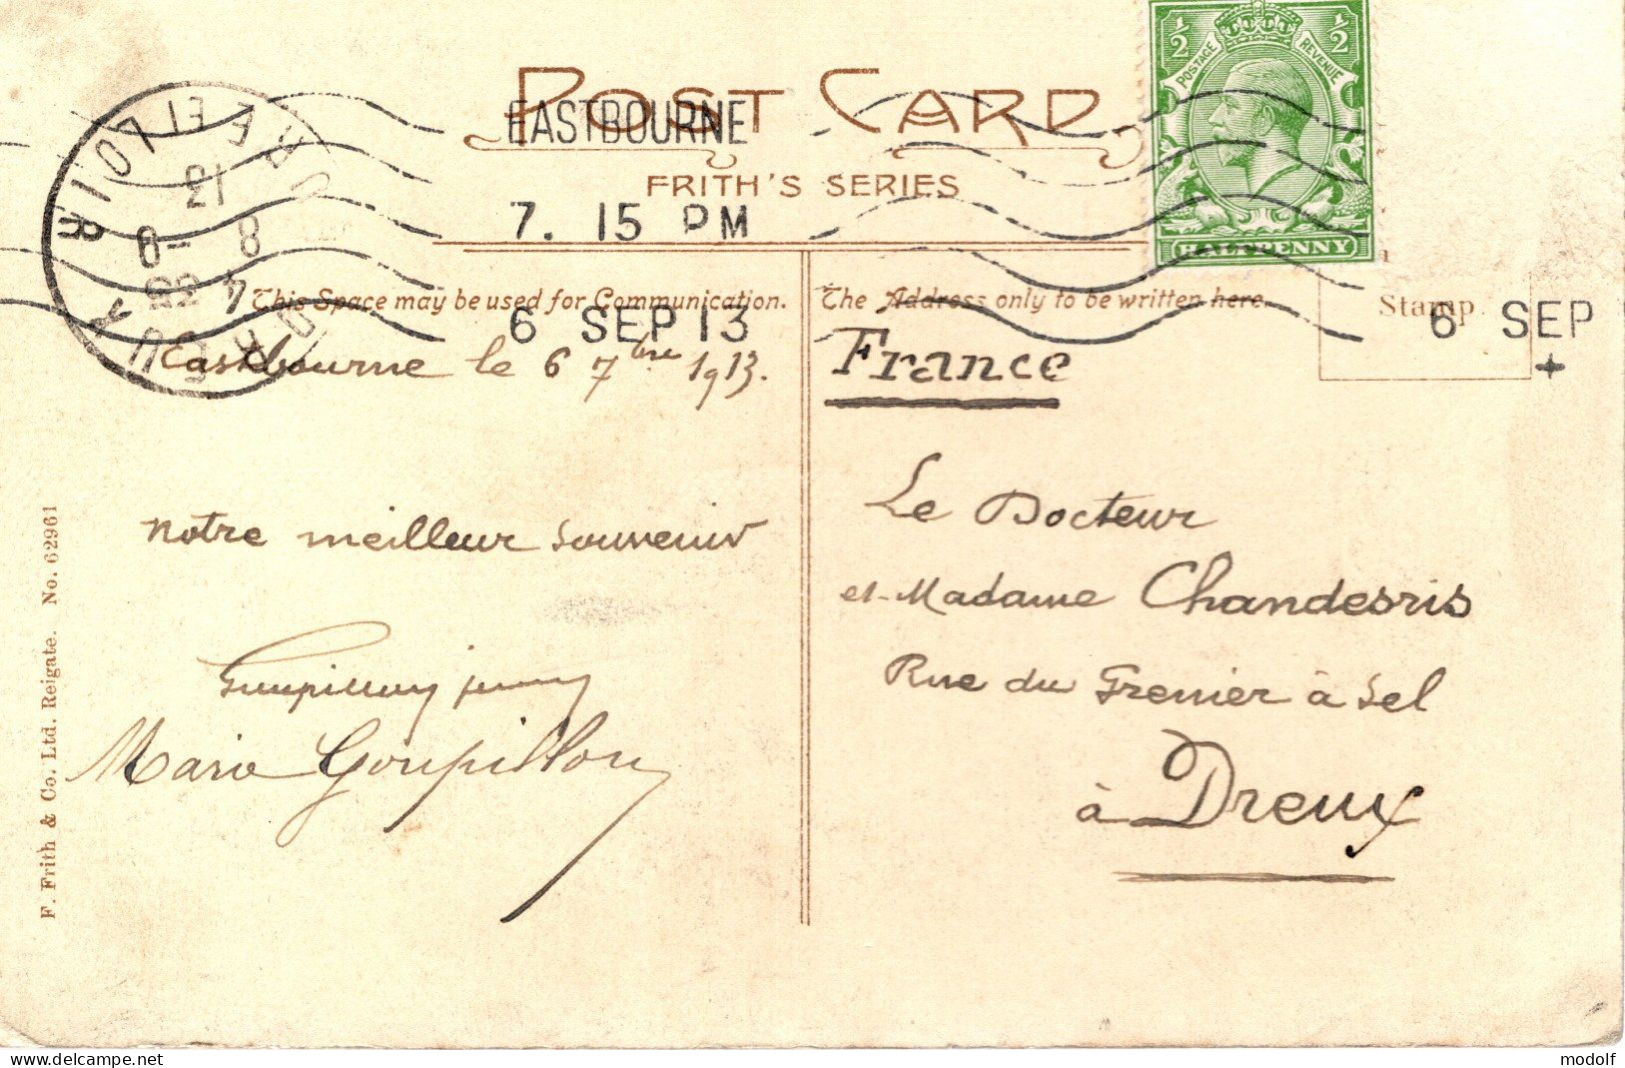 POST CARD
FRITH'S SERIES
EASTBOURNE
7. 15 PM
6 SEP 13
1/2 1/2
POSTAGE REVENUE
HALFPENNY
This Space may be used for Communication.
The Address only to be written here
Stamp
6 SEP
EURE ET LOIR
DREUX
Eastbourne le 6 7bre 1913.
notre meilleur souvenir
Marie Goupillon
France
Le Docteur
et Madame Chandesris
Rue du Grenier à Sel
à Dreux
F. Frith & Co. Ltd. Reigate. No. 62961
modolf